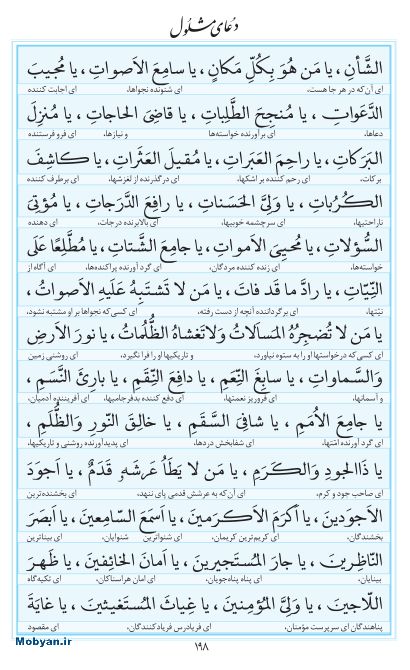 دعای مشلول
الشَّأنِ، یا مَن هُوَ بِکُلِّ مَکانٍ، یا سامِعَ الاَصواتِ، یا مُجیبَ
ای آن‌که در هر جا هست، ای شنونده نجواها، ای اجابت کننده
الدَّعَواتِ، یا مُنجِحَ الطَّلِباتِ، یا قاضِیَ الحاجاتِ، یا مُنزِلَ
دعاها، ای برآورنده خواسته‌ها و نیازها، ای فرو فرستنده
البَرَکاتِ، یا راحِمَ العَبَراتِ، یا مُقیلَ العَثَراتِ، یا کاشِفَ
برکات، ای رحم کننده بر اشکها، ای در گذرنده از لغزشها، ای برطرف کننده
الکُرُباتِ، یا وَلِیَّ الحَسَناتِ، یا رافِعَ الدَّرَجاتِ، یا مُؤتِیَ
ناراحتیها، ای سرچشمه خوبیها، ای بالابرنده درجات، ای دهنده
السُّؤلاتِ، یا مُحیِیَ الاَمواتِ، یا جامِعَ الشَّتاتِ، یا مُطَّلِعًا عَلَی
خواسته‌ها، ای زنده کننده مردگان، ای گرد آورنده پراکنده‌ها، ای آگاه از
النِّیّاتِ، یا رادَّ ما قَد فاتَ، یا مَن لا تَشتَبِهُ عَلَیهِ الاَصواتُ،
نیّتها، ای برگرداننده آنچه از دست رفته، ای کسی که نجواها بر او مشتبه نشود،
یا مَن لا تُضجِرُهُ المَسألاتُ وَلاتَغشاهُ الظُّلُماتُ، یا نورَ الاَرضِ
ای کسی که درخواستها او را به ستوه نیاورد، و تاریکیها او را فرا نگیرد، ای روشنی زمین
وَالسَّماواتِ، یا سابِغَ النِّعَمِ، یا دافِعَ النِّقَمِ، یا بارِئَ النَّسَمِ،
و آسمانها، ای فروریز نعمتها، ای دفع کننده بدفرجامیها، ای آفریننده آدمیان،
یا جامِعَ الاُمَمِ، یا شافِیَ السَّقَمِ، یا خالِقَ النّورِ وَالظُّلَمِ،
ای گرد آورنده امّتها، ای شفابخش دردها، ای پدیدآورنده روشنی و تاریکیها،
یا ذَاالجودِ وَالکَرَمِ، یا مَن لا یَطَأُ عَرشَهُ قَدَمٌ، یا اَجوَدَ
ای صاحب جود و کرم، ای آن‌که به عرشش قدمی پای ننهد، ای بخشنده‌ترین
الاَجوَدینَ، یا اَکرَمَ الاَکرَمینَ، یا اَسمَعَ السّامِعینَ، یا اَبصَرَ
بخشندگان، ای کریم‌ترین کریمان، ای شنواترین شنوایان، ای بیناترین
النّاظِرینَ، یا جارَ المُستَجیرینَ، یا اَمانَ الخائِفینَ، یا ظَهرَ
بینایان، ای پناه پناه‌جویان، ای امان هراسناکان، ای تکیه‌گاه
اللاجینَ، یا وَلِیَّ المُؤمِنینَ، یا غِیاثَ المُستَغیثینَ، یا غایَةَ
پناهندگان ای سرپرست مؤمنان، ای فریادرس فریادکنندگان، ای مقصود
۱۹۸
Mobyan.ir